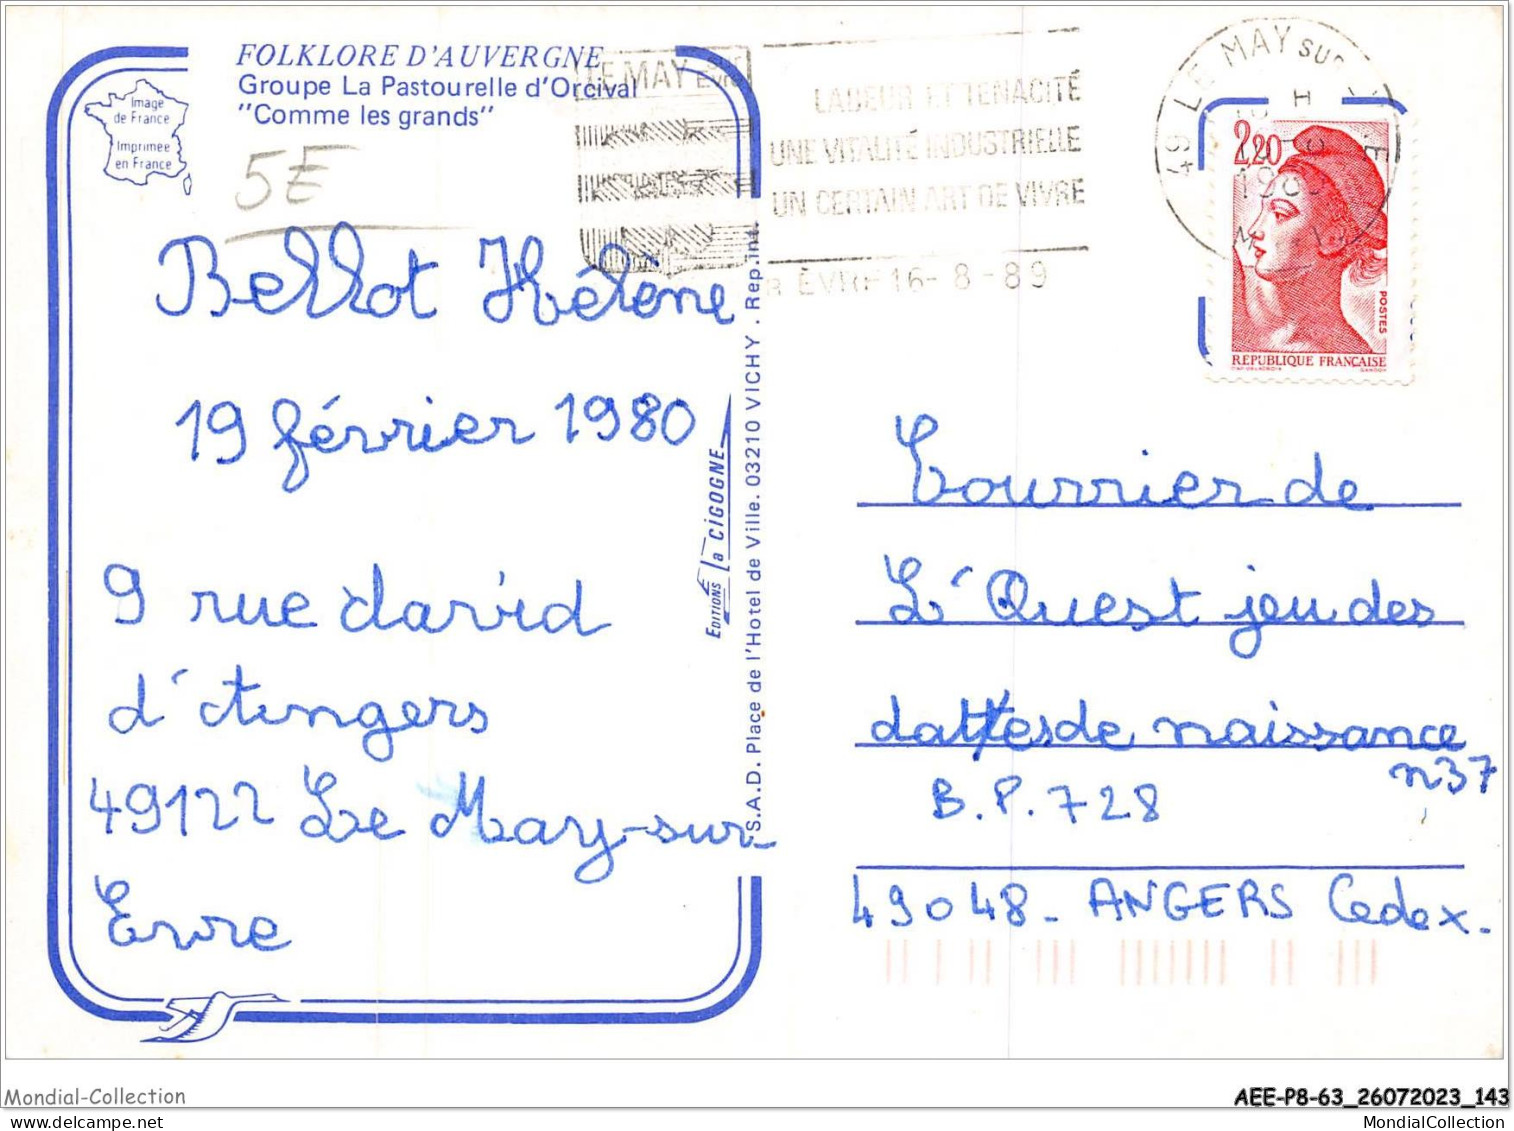 FOLKLORE D'AUVERGNE
Groupe La Pastourelle d'Orcival
"Comme les grands"
Image
de France
Imprimée
en France
5E
Bellot Hélène
19 février 1980
9 rue david
d'Angers
49122 Le May-sur-
Evre
EDITIONS la CIGOGNE
S.A.D. Place de l'Hotel de Ville. 03210 VICHY . Rep. int.
LE MAY sur Evre
LABEUR ET TENACITÉ
UNE VITALITÉ INDUSTRIELLE
UN CERTAIN ART DE VIVRE
R EVRE 16-8-89
49 LE MAY SUR
2,20
POSTES
RÉPUBLIQUE FRANÇAISE
D'AP. DELACROIX GANDON
Courrier de
L'Ouest jeu des
dattes de naissance
n37
B.P. 728
49048 - ANGERS Cedex -
Mondial-Collection
AEE-P8-63_26072023_143
MondialCollection